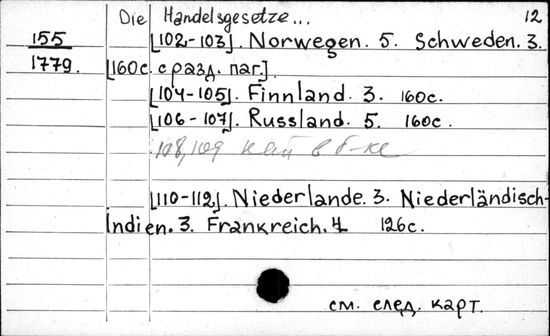 Die Handelsgesetze... 12
155 [102-103]. Norwegen. 5. Schweden. 3.
1779. [160с. с разд. паг.]
[104-105]. Finnland. 3. 160с.
[106-107]. Russland. 5. 160с.
108, 109 нет в б-ке
[110-112]. Niederlande. 3. Niederländisch-
Indien. 3. Frankreich. 4 126с.
см. след. карт.